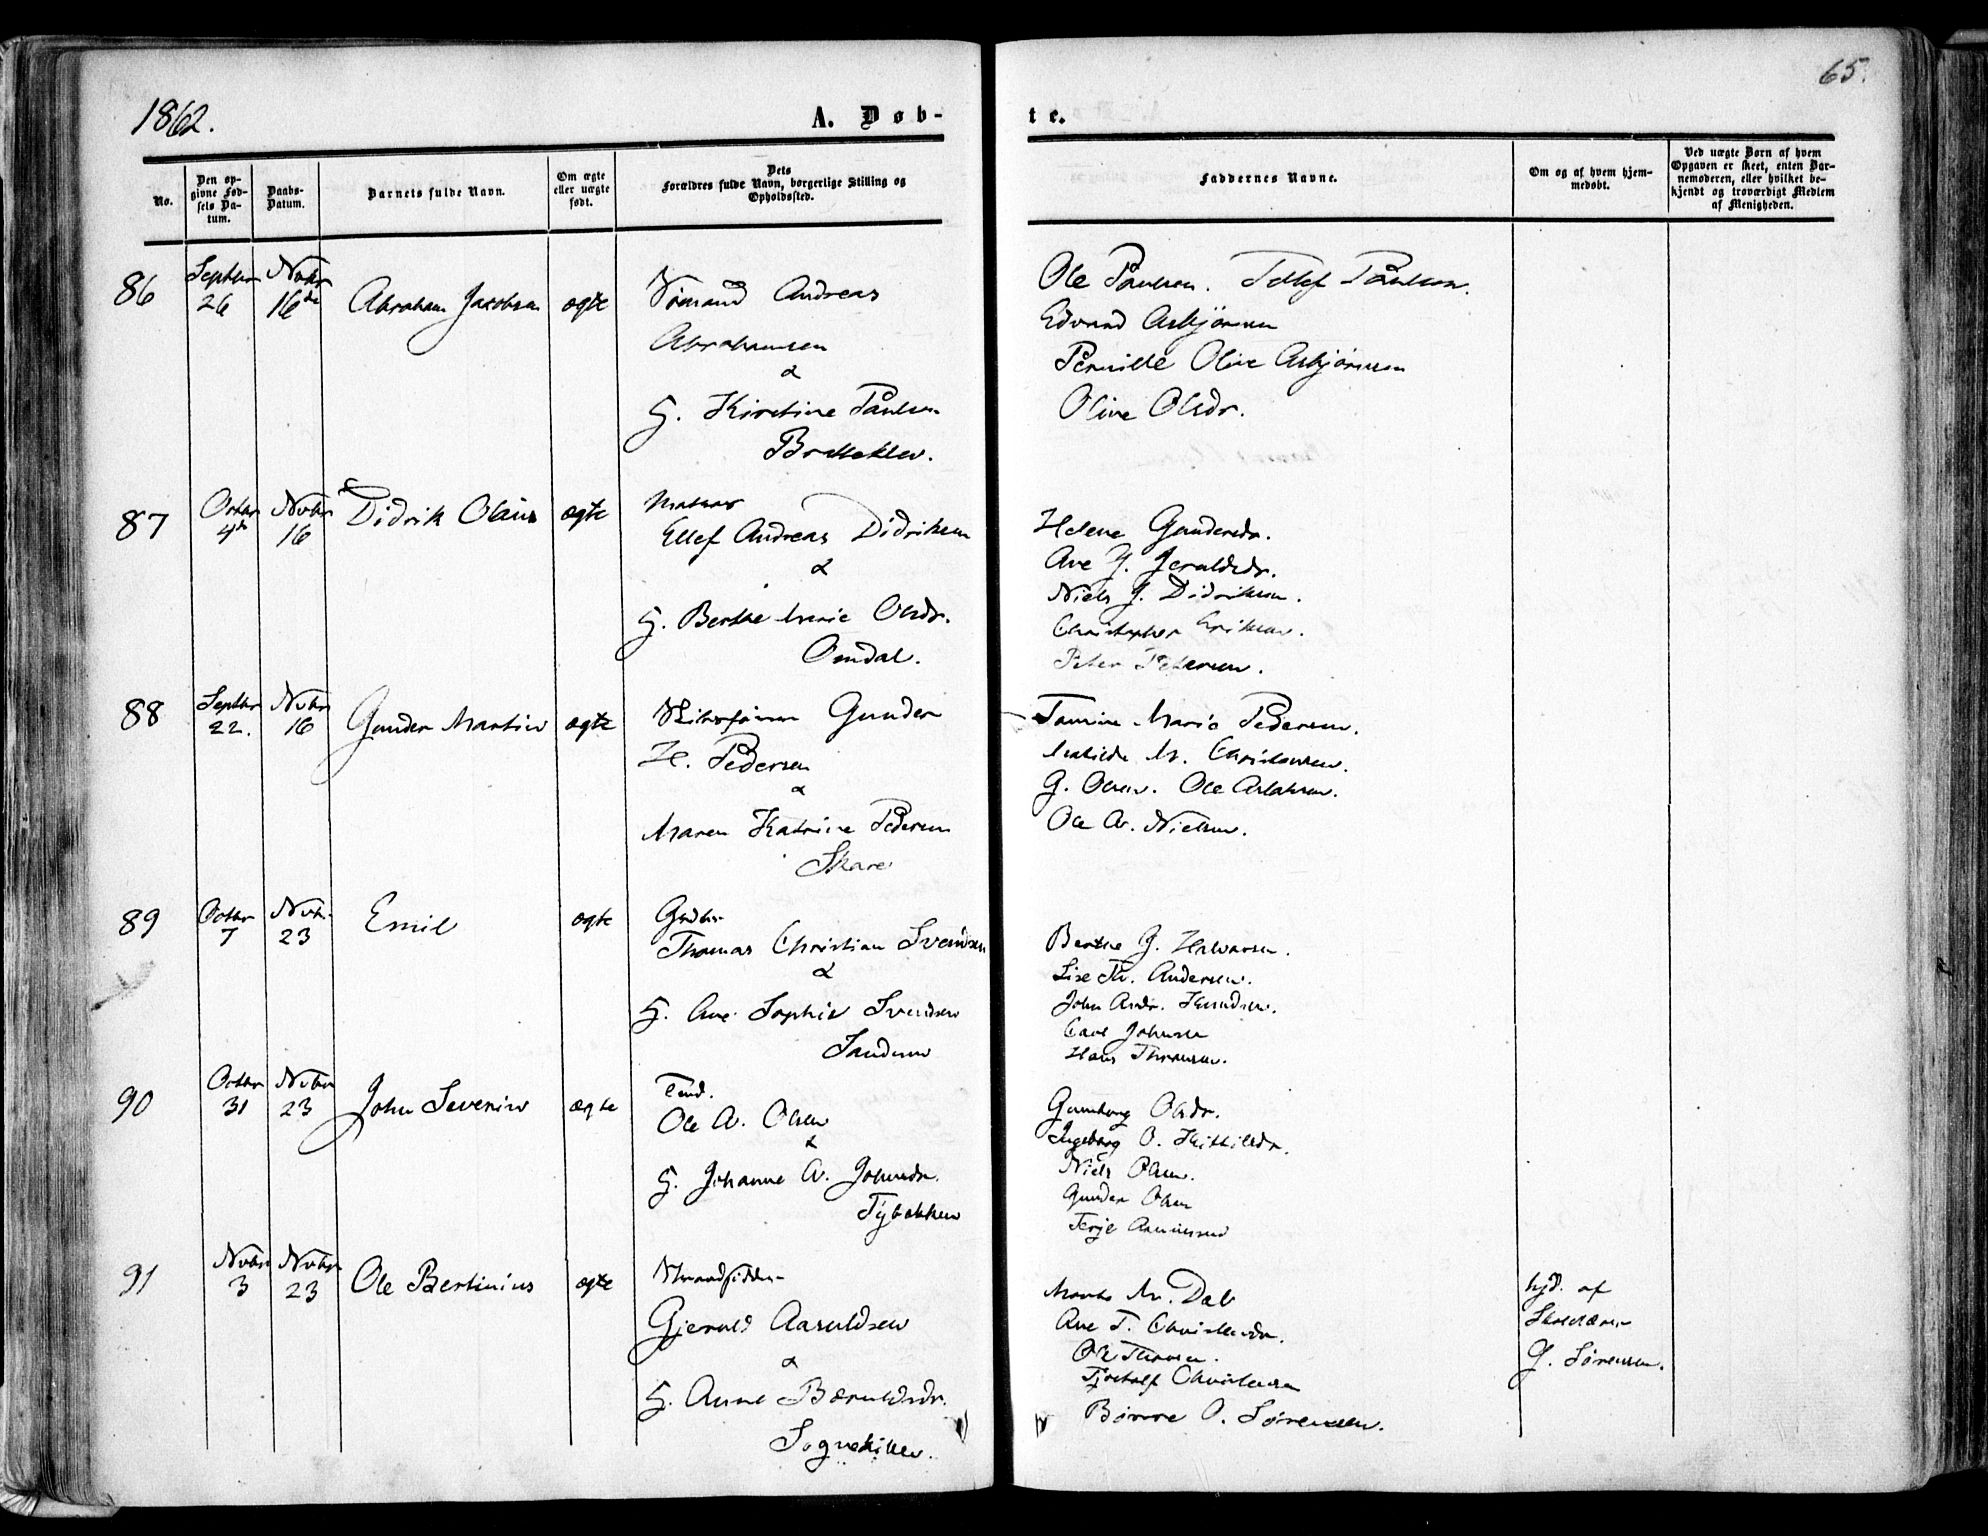 1862.
65.
A. Døb-
te.
No.
Den op-
givne Fød-
sels Da-
tum.
Daabs-
Datum.
Barnets fulde Navn.
Om ægte
eller uægte
født.
Dets
Forældres fulde Navn, borgerlige Stilling og
Opholdssted.
Faddernes Navne.
Om og af hvem hjem-
medøbt.
Ved uægte Børn af hvem
Opgaven er skeet, enten Bar-
nemoderen, eller hvilket be-
kjendt og troværdigt Medlem
af Menigheden.
86
Septbr
26
Novbr
16de
Abraham Jacobsen
ægte
Sømand Andreas
Abrahamsen
&
H. Kirstine Paulsen
Ole Paulsen. Tellef Paulsen.
Edvard Asbjörnsen
Pernille Oline Asbjörnsen
Oline Olsdr.
87
Octbr
4de
Novbr
16
Didrik Olaus
ægte
Matros
Ellef Andreas Didriksen
&
H. Berthe Marie Olsdr.
Omdal.
Helene Gundersdr.
Ane J. Jeraldsdr.
Niels J. Didriksen.
Christopher Eriksen.
Peter Petersen.
88
Septbr
22.
Novbr
16
Gunder Martin
ægte
Gunder
H. Pedersen
&
Maren Katrine Pedersen
Skare
Tomine Marie Pedersen.
Mathilde M. Christensen.
G. Olsen. Ole Aslaksen.
Ole A. Nielsen.
89
Octbr
7
Novbr.
23
Emil
ægte
Grdbr
Thomas Christian Svendsen
&
H. Ane Sophie Svendsen
Sandum
Berthe G. Halvorsen.
Lise Th. Andersen.
John Andr. Knudsen.
Carl Johnsen
Hans Thomsen.
90
Octbr
31
Novbr
23
John Severin
ægte
Ole A. Olsen
&
H. Johanne A. Johnsdr.
Tybakken
Gunborg Olsdr.
Ingeborg O. Kittilsdr.
Niels Olsen.
Gunder Olsen
Terje Asmundsen
91
Novbr
3
Novbr
23
Ole Bertinius
ægte
Strandsidder
Gjeruld Aasuldsen
&
H. Anne Bæruldsdr.
Songekilen.
Marthe M. Dal
Ane T. Christensdr.
Ole Thomsen.
Tjostolf Christensen
Börre O. Sörensen.
hjd. af
Skolelærer
G. Sörensen.